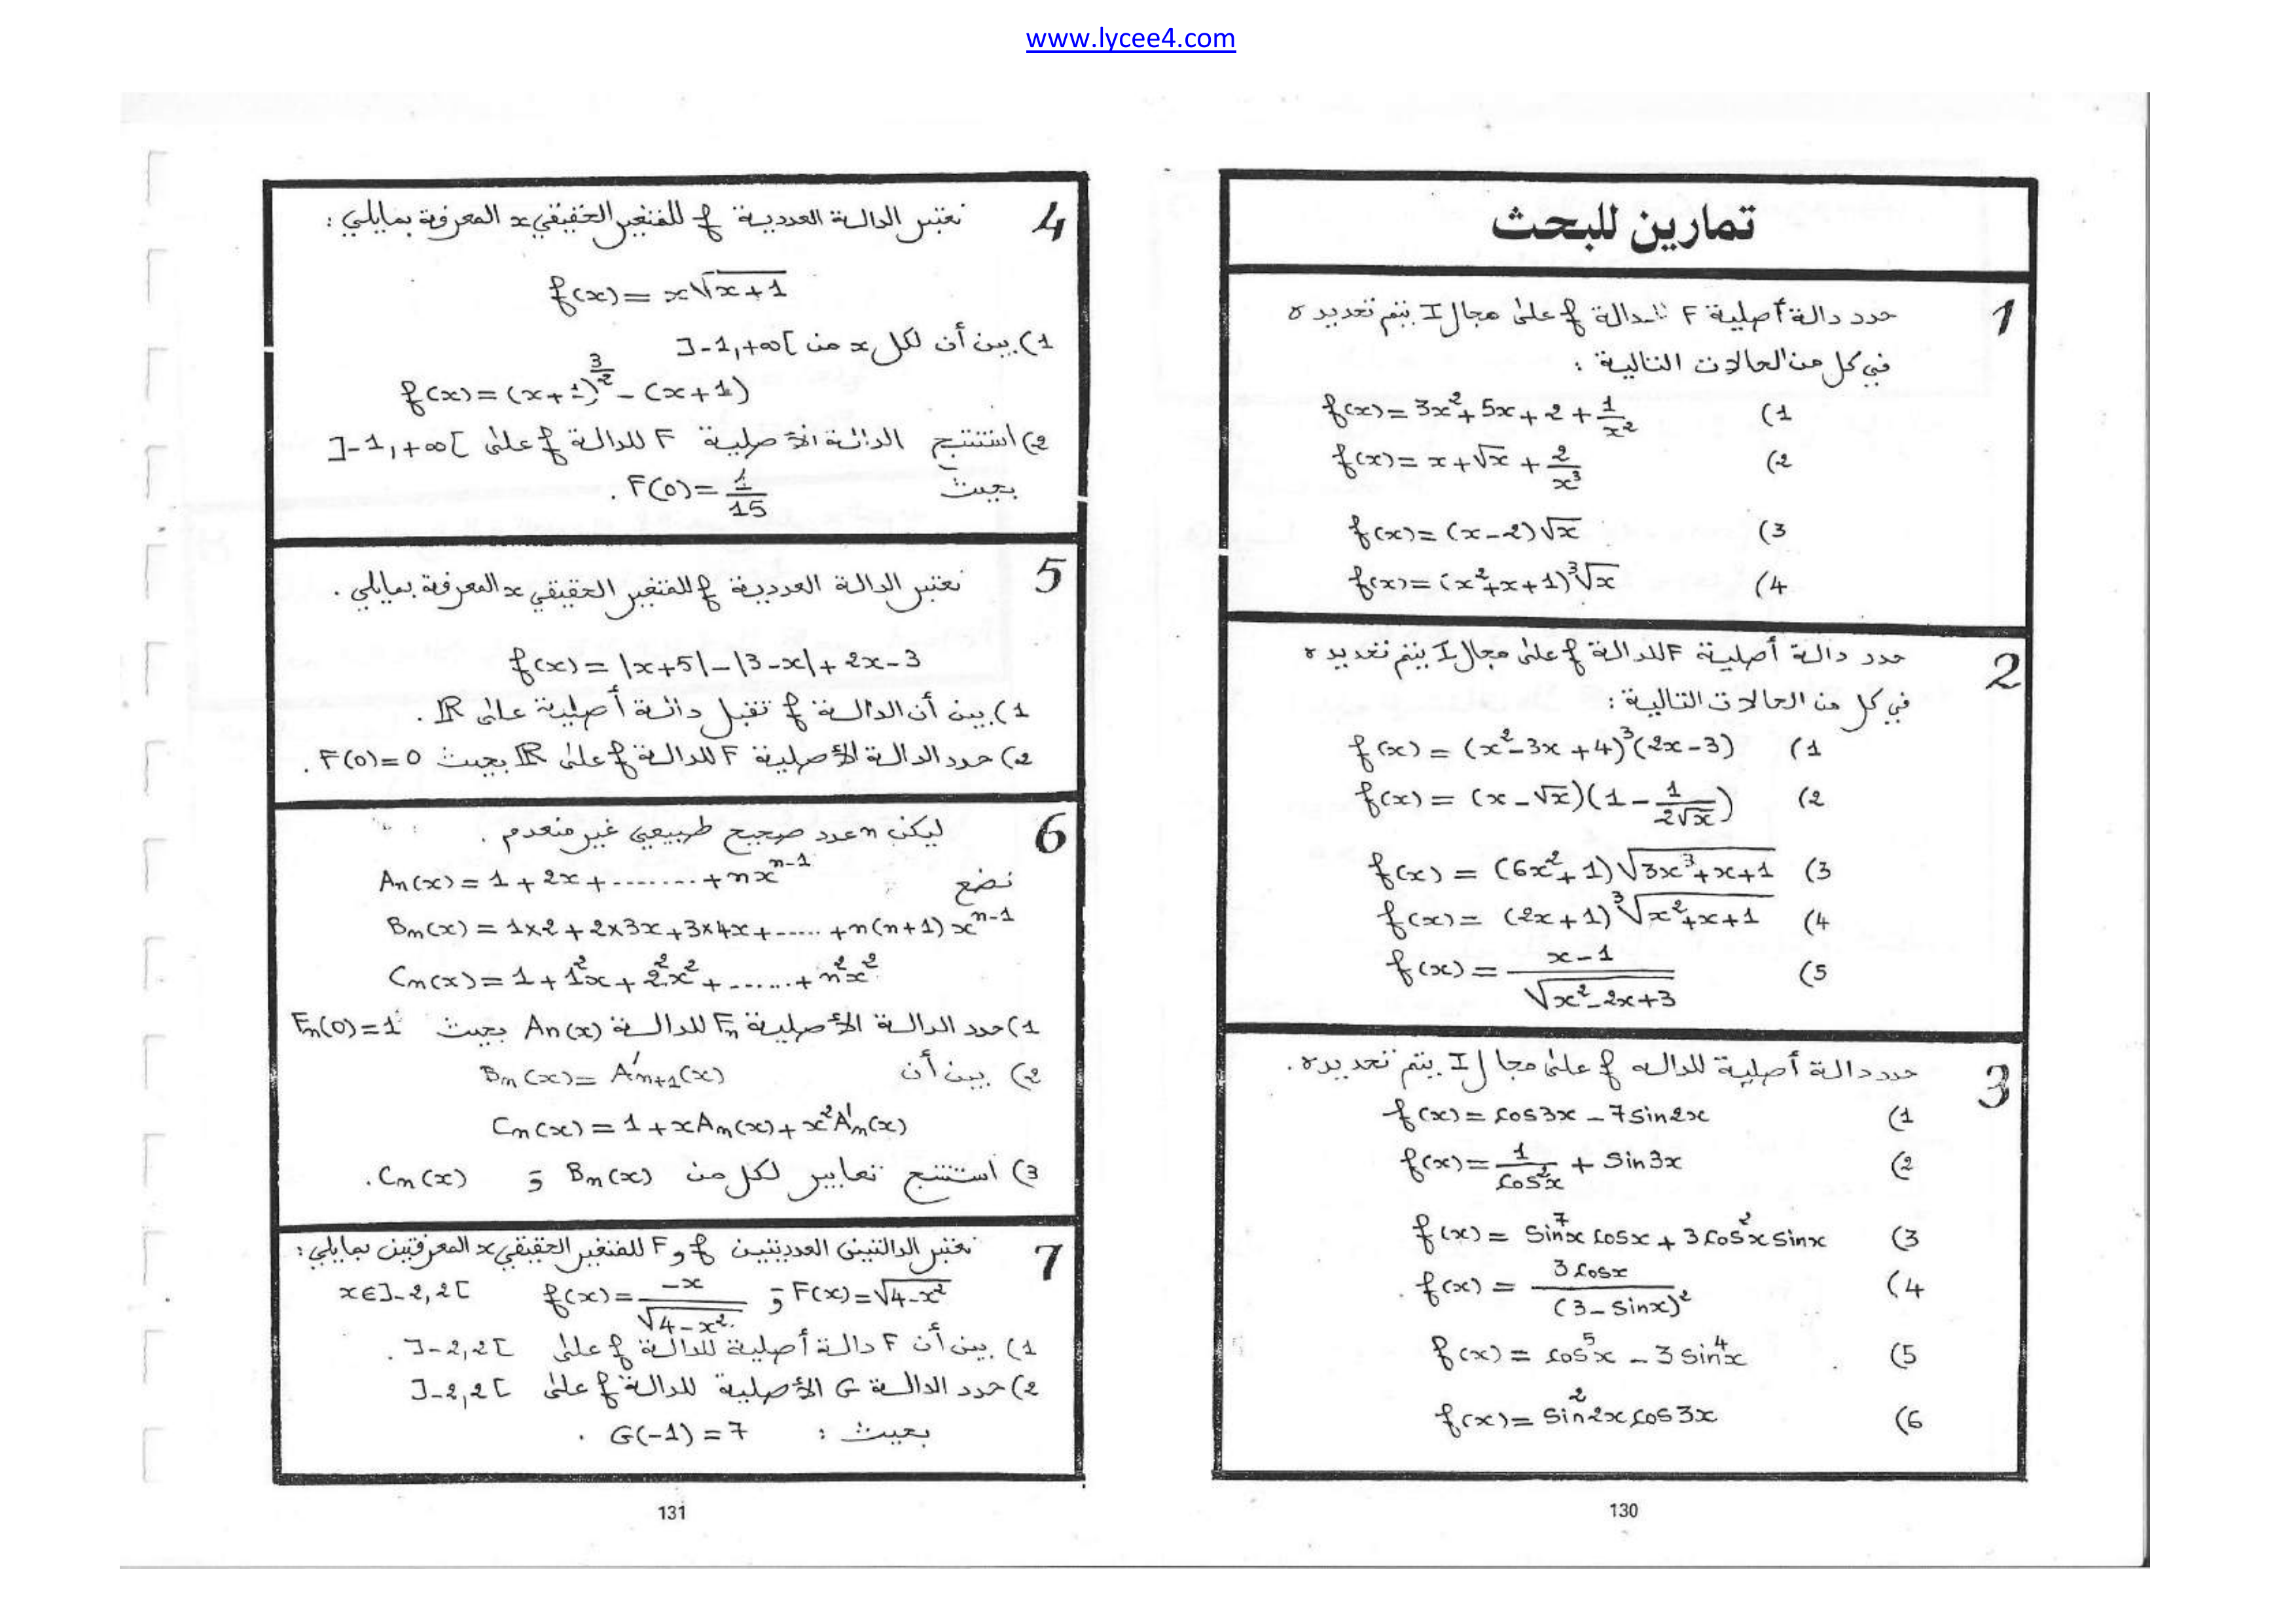 www.lycee4.com
تمارين للبحث
1
حدد دالة أصلية F للدالة f على مجال I يتم تحديده
في كل من الحالات التالية :
1) f(x) = 3x² + 5x + 2 + 1/x²
2) f(x) = x + √x + 2/x³
3) f(x) = (x-2)√x
4) f(x) = (x²+x+1)∛x
2
حدد دالة أصلية F للدالة f على مجال I يتم تحديده
في كل من الحالات التالية :
1) f(x) = (x²-3x+4)³(2x-3)
2) f(x) = (x-√x)(1 - 1/(2√x))
3) f(x) = (6x²+1)√(3x³+x+1)
4) f(x) = (2x+1)∛(x²+x+1)
5) f(x) = (x-1)/√(x²-2x+3)
3
حدد دالة أصلية للداله f على مجال I يتم تحديده.
1) f(x) = cos3x - 7sin2x
2) f(x) = 1/cos²x + sin3x
3) f(x) = sin⁷x cosx + 3cos²x sinx
4) f(x) = 3cosx/(3-sinx)²
5) f(x) = cos⁵x - 3sin⁴x
6) f(x) = sin²2x cos3x
130
4
نعتبر الدالة العددية f للمتغير الحقيقي x المعرفة بمايلي :
f(x) = x√(x+1)
1) بين أن لكل x من ]-1,+∞[
f(x) = (x+1)^(3/2) - (x+1)
2) استنتج الدالة الأصلية F للدالة f على ]-1,+∞[
بحيث F(0) = 1/15 .
5
نعتبر الدالة العددية f للمتغير الحقيقي x المعرفة بمايلي .
f(x) = |x+5| - |3-x| + 2x - 3
1) بين أن الدالة f تقبل دالة أصلية على ℝ .
2) حدد الدالة الأصلية F للدالة f على ℝ بحيث F(0) = 0 .
6
ليكن n عدد صحيح طبيعي غير منعدم .
نضع Aₙ(x) = 1 + 2x + ........ + nxⁿ⁻¹
Bₙ(x) = 1×2 + 2×3x + 3×4x + ..... + n(n+1)xⁿ⁻¹
Cₙ(x) = 1 + 1²x + 2²x² + ....... + n²x²
1) حدد الدالة الأصلية Fₙ للدالة Aₙ(x) بحيث Fₙ(0) = 1
2) بين أن Bₙ(x) = A'ₙ₊₁(x)
Cₙ(x) = 1 + xAₙ(x) + x²A'ₙ(x)
3) استنتج تعابير لكل من Bₙ(x) و Cₙ(x) .
7
نعتبر الدالتين العدديتين f و F للمتغير الحقيقي x المعرفتين بمايلي :
F(x) = √(4-x²) و f(x) = -x/√(4-x²) x∈]-2,2[
1) بين أن F دالة أصلية للدالة f على ]-2,2[ .
2) حدد الدالة G الأصلية للدالة f على ]-2,2[
بحيث : G(-1) = 7 .
131